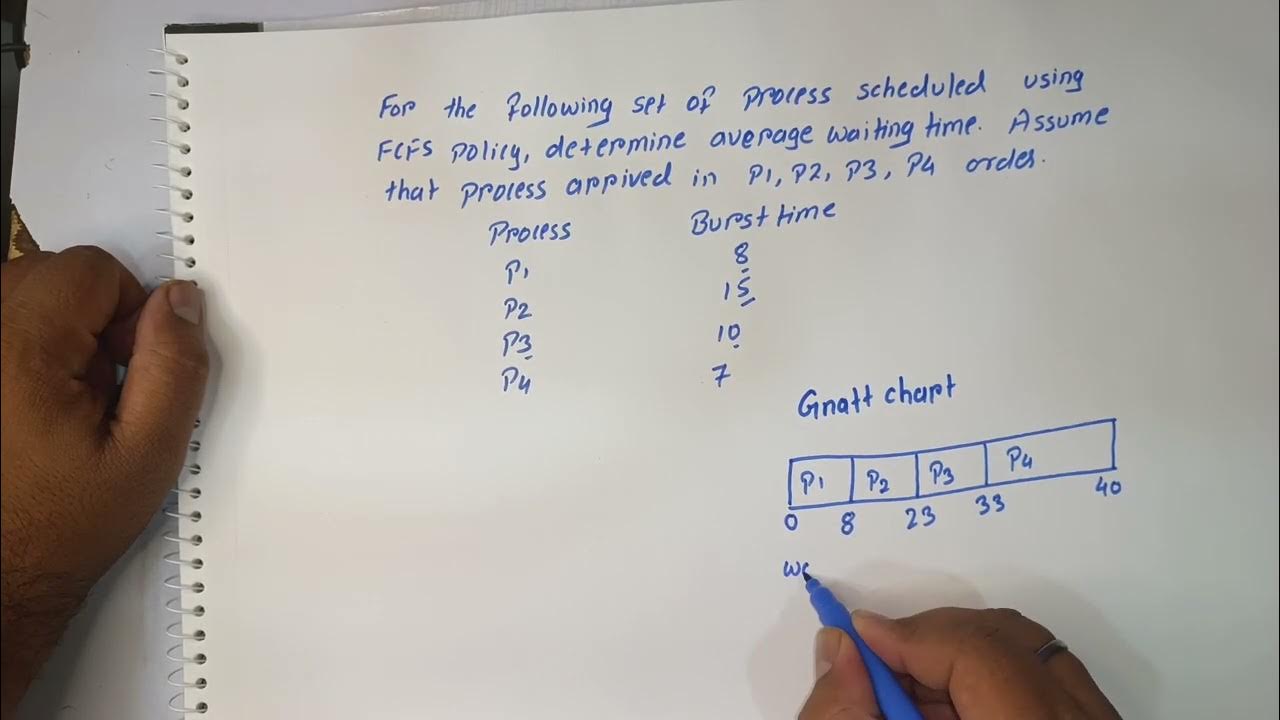 For the following set of process scheduled using
FCFS policy, determine average waiting time. Assume
that process arrived in P1, P2, P3, P4 order.
Process Burst time
P1 8
P2 15
P3 10
P4 7
Gnatt chart
P1 P2 P3 P4
0 8 23 33 40
wa